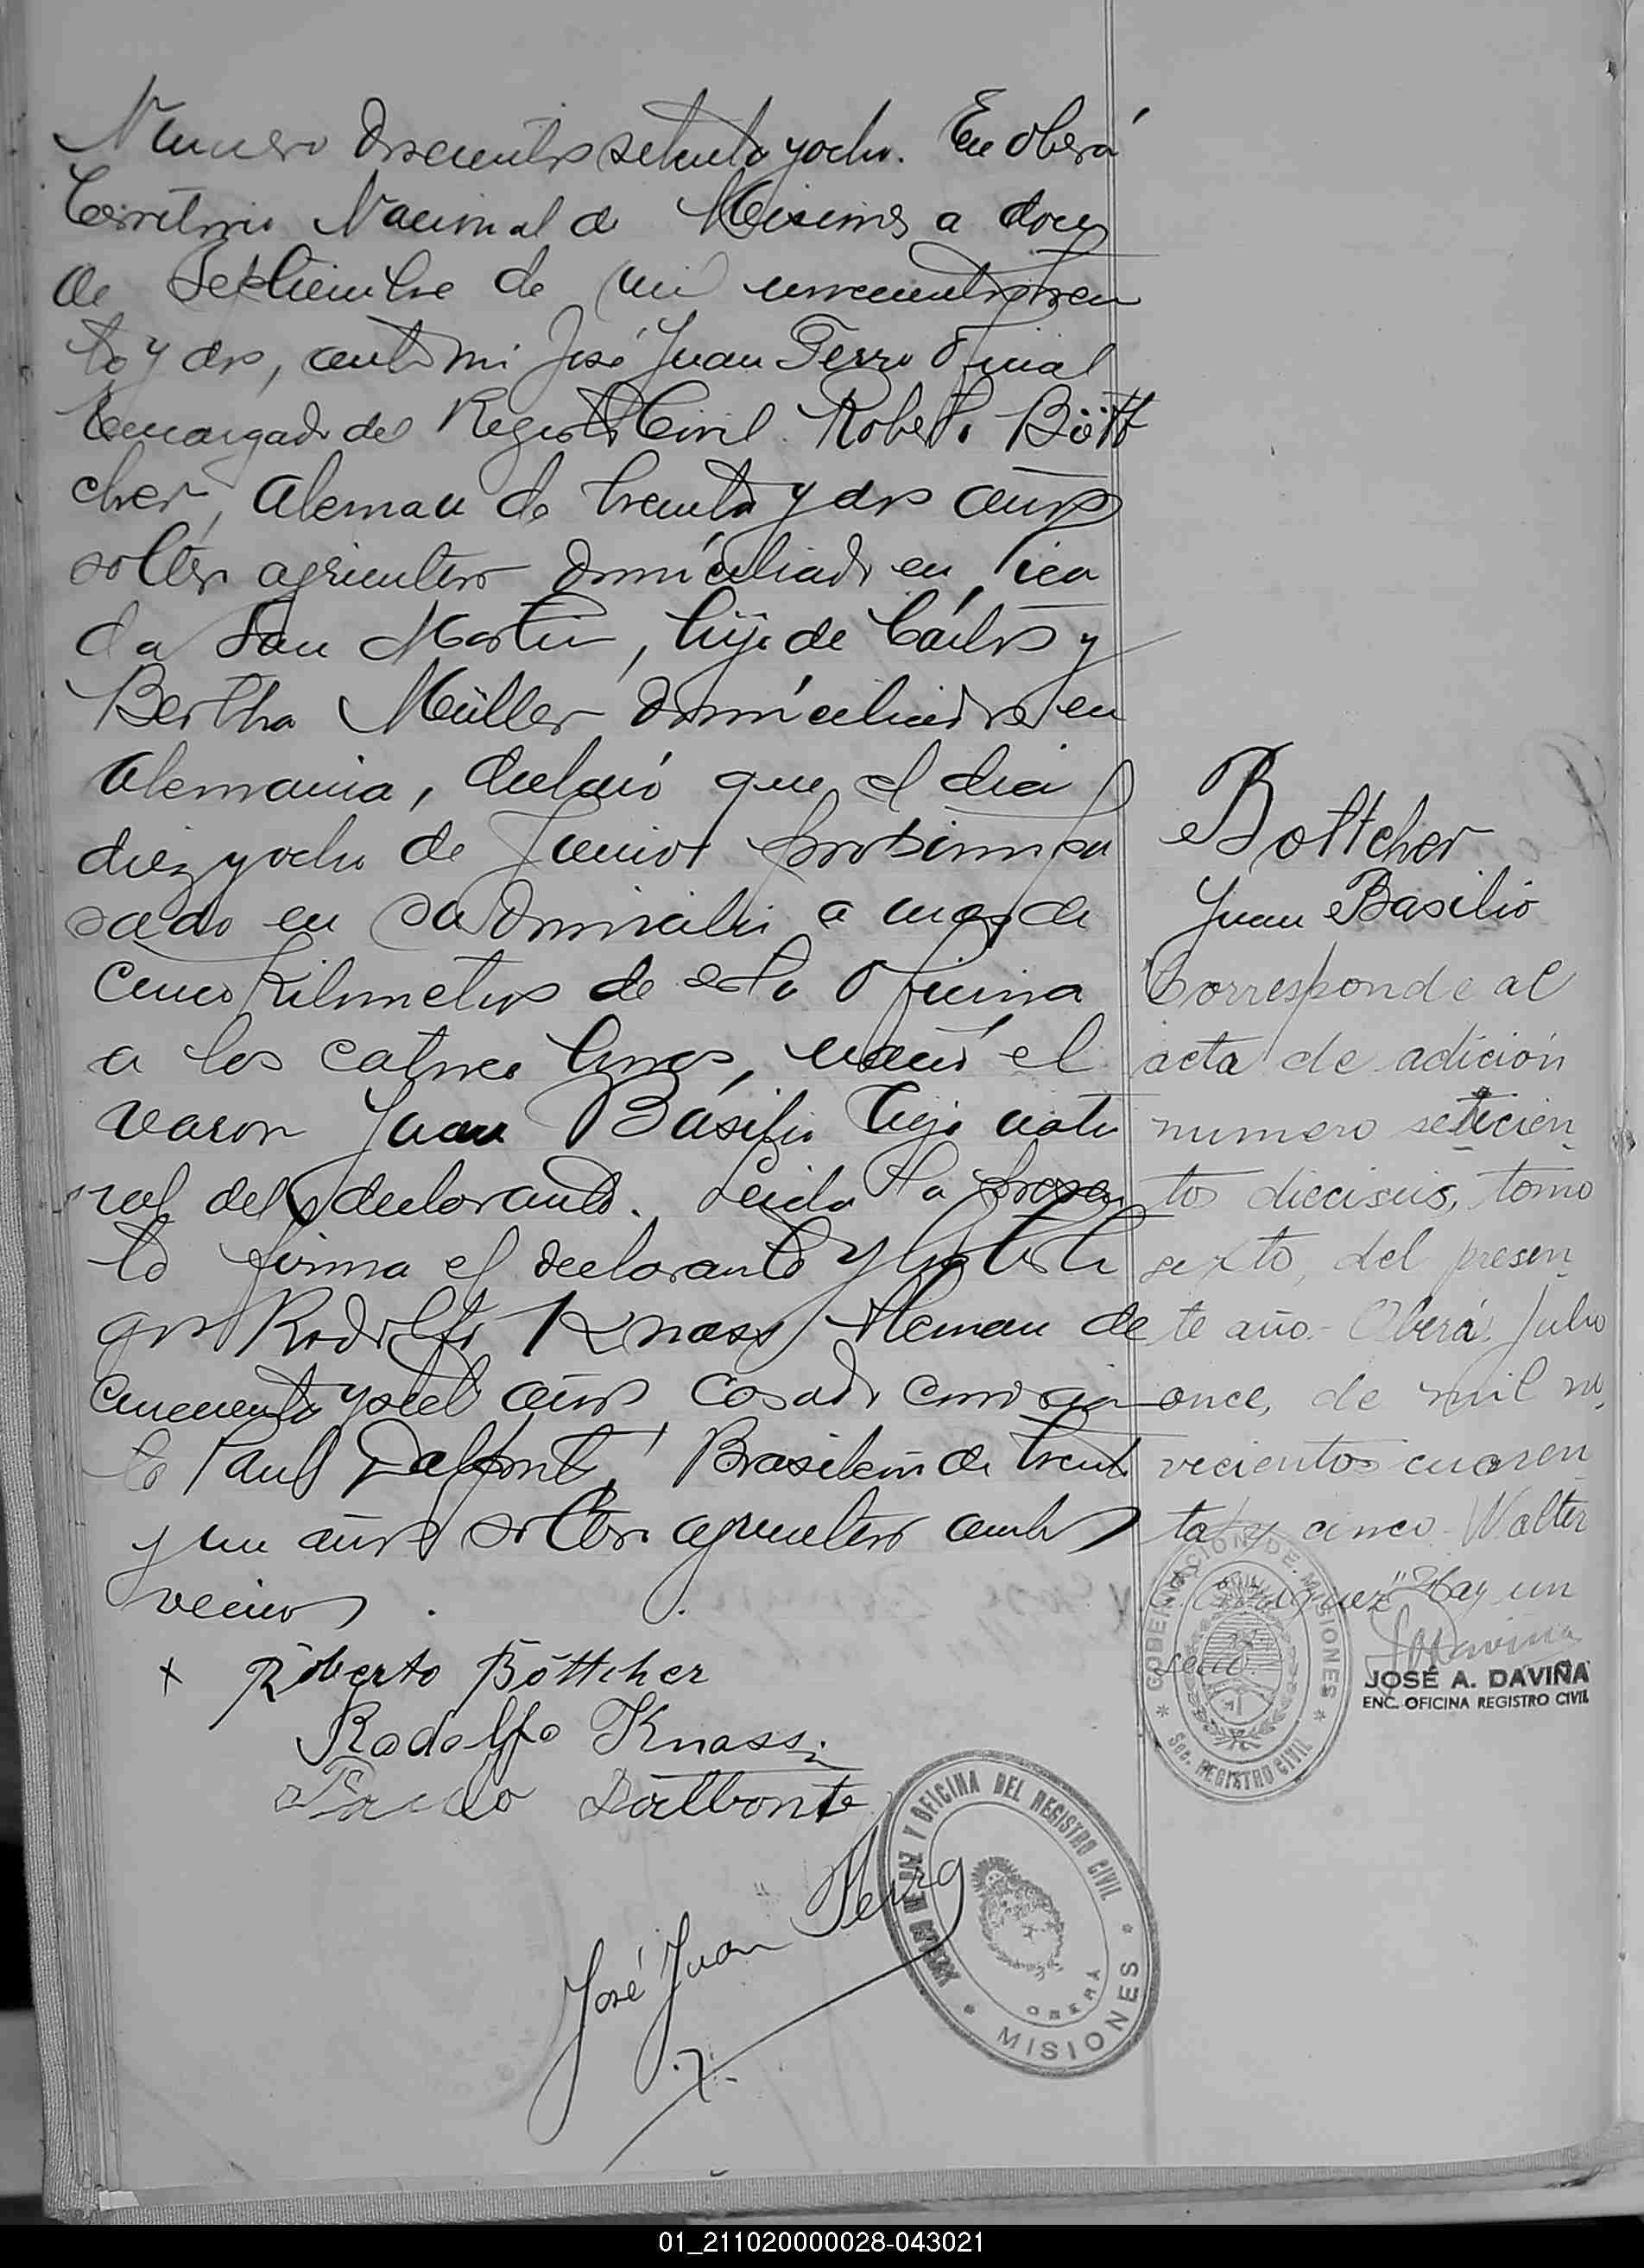 Numero doscientos setenta y ocho. En Oberá
Territorio Nacional de Misiones a doce
de Septiembre de mil novecientos trein
ta y dos, ante mi José Juan Ferro Oficial
Encargado del Registro Civil Roberto Bött
cher, Aleman de treinta y dos años
soltero agricultor domiciliado en Pica
da San Martin, hijo de Carlos y
Bertha Müller domiciliados en
Alemania, declaró que el dia
diez y ocho de Junio proximo pa
sado en su domicilio a mas de
cinco kilometros de esta Oficina
a las catorce horas, nació el
varon Juan Basilio hijo natu
ral del declarante. Leida la presen
te firma el declarante y los testi
gos Rodolfo Knass Aleman de
cincuenta y siete años casado
Paul Dalbonte, Brasileño de treinta
y un años soltero agricultor ambos
vecinos
x Roberto Böttcher
Rodolfo Knass
Paulo Dalbonte
José Juan Ferro
Bottcher
Juan Basilio
Corresponde al
acta de adición
numero setecien
tos dieciseis, tomo
sexto, del presen
te año.- Oberá: Julio
once, de mil no
vecientos cuaren
ta y cinco. Walter
"Hay un
sello.
JOSÉ A. DAVIÑA
ENC. OFICINA REGISTRO CIVIL
GOBERNACIÓN DE MISIONES
Sec. REGISTRO CIVIL
JUZGADO DE PAZ Y OFICINA DEL REGISTRO CIVIL
OBERÁ
MISIONES
01_211020000028-043021